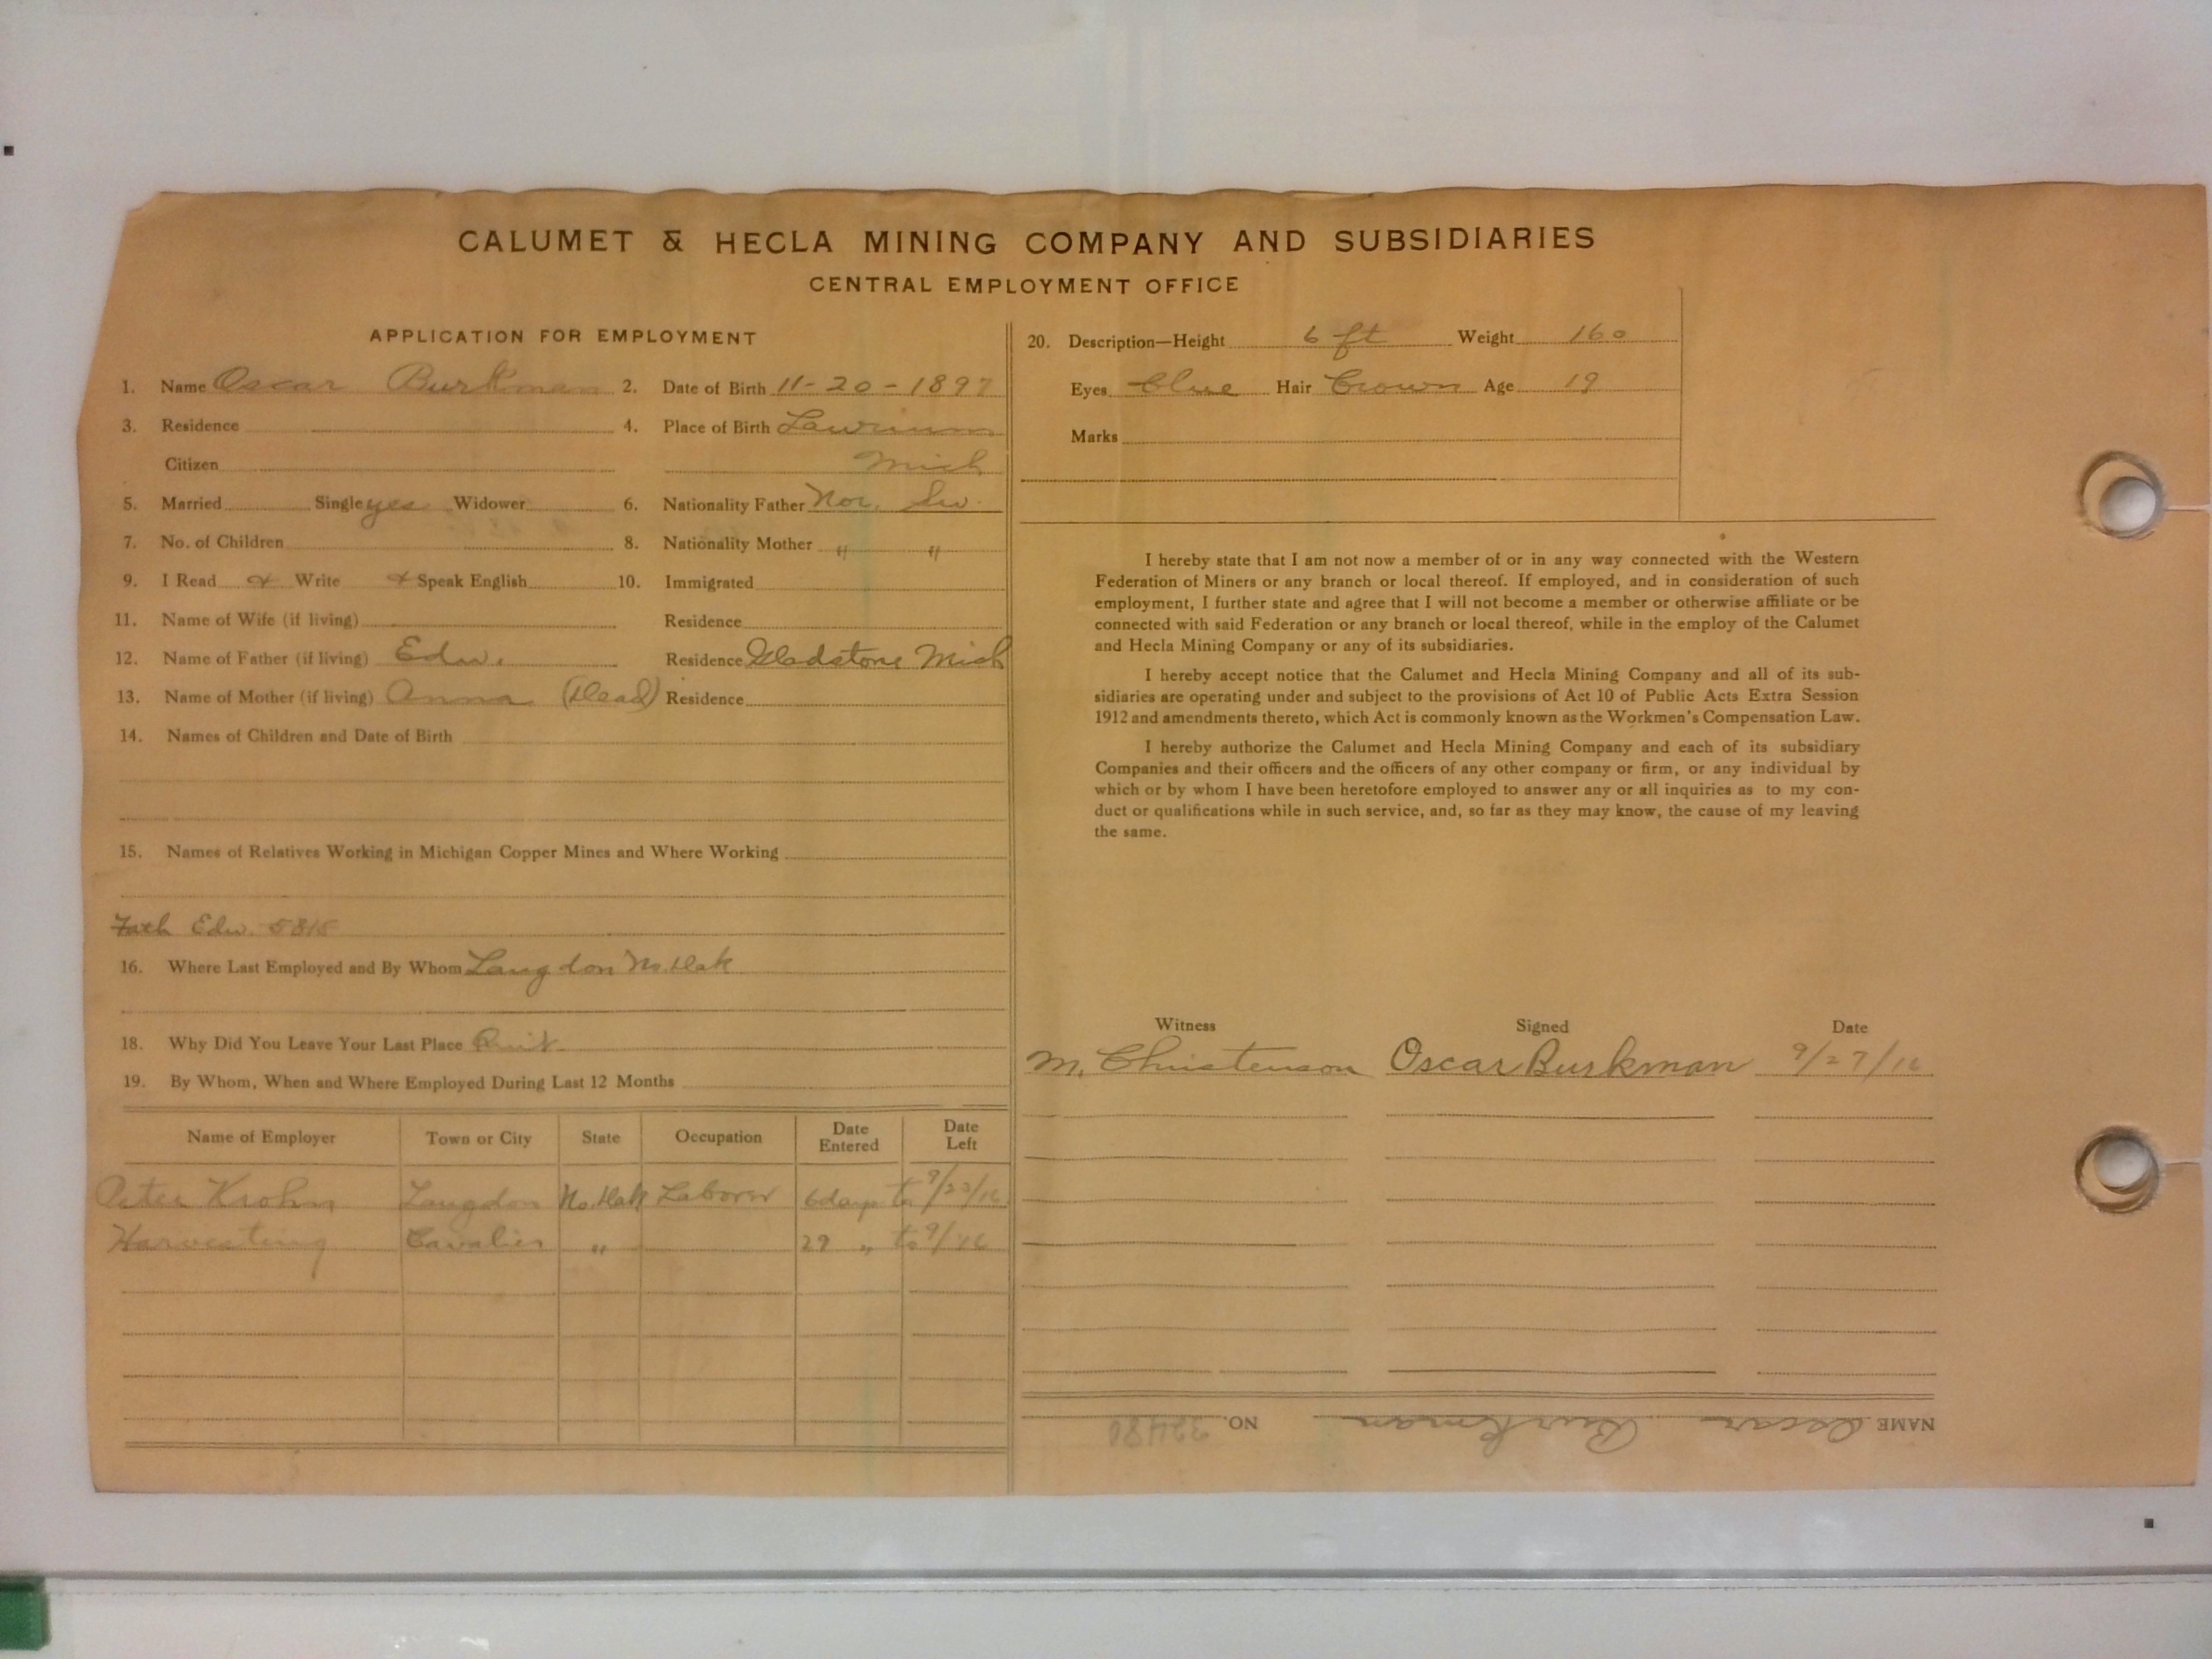 CALUMET & HECLA MINING COMPANY AND SUBSIDIARIES
CENTRAL EMPLOYMENT OFFICE
APPLICATION FOR EMPLOYMENT
1. Name Oscar Burkman 2. Date of Birth 11-20-1897
3. Residence 4. Place of Birth Lawrium
Citizen Mich
5. Married Single yes Widower 6. Nationality Father Nor. Sw.
7. No. of Children 8. Nationality Mother " "
9. I Read & Write & Speak English 10. Immigrated
11. Name of Wife (if living) Residence
12. Name of Father (if living) Edw. Residence Gladstone Mich
13. Name of Mother (if living) Anna (Dead) Residence
14. Names of Children and Date of Birth
15. Names of Relatives Working in Michigan Copper Mines and Where Working
Fath Edw. 5815
16. Where Last Employed and By Whom Langdon No. Dak
18. Why Did You Leave Your Last Place Quit
19. By Whom, When and Where Employed During Last 12 Months
Name of Employer Town or City State Occupation Date Entered Date Left
Peter Krohn Langdon No. Dak Laborer 6 days to 9/23/16
Harvesting Cavalier " 29 " to 9/16
20. Description—Height 6 ft Weight 160
Eyes blue Hair Brown Age 19
Marks
I hereby state that I am not now a member of or in any way connected with the Western
Federation of Miners or any branch or local thereof. If employed, and in consideration of such
employment, I further state and agree that I will not become a member or otherwise affiliate or be
connected with said Federation or any branch or local thereof, while in the employ of the Calumet
and Hecla Mining Company or any of its subsidiaries.
I hereby accept notice that the Calumet and Hecla Mining Company and all of its sub-
sidiaries are operating under and subject to the provisions of Act 10 of Public Acts Extra Session
1912 and amendments thereto, which Act is commonly known as the Workmen's Compensation Law.
I hereby authorize the Calumet and Hecla Mining Company and each of its subsidiary
Companies and their officers and the officers of any other company or firm, or any individual by
which or by whom I have been heretofore employed to answer any or all inquiries as to my con-
duct or qualifications while in such service, and, so far as they may know, the cause of my leaving
the same.
Witness Signed Date
M. Christenson Oscar Burkman 9/27/16
NAME Oscar Burkman NO. 32480